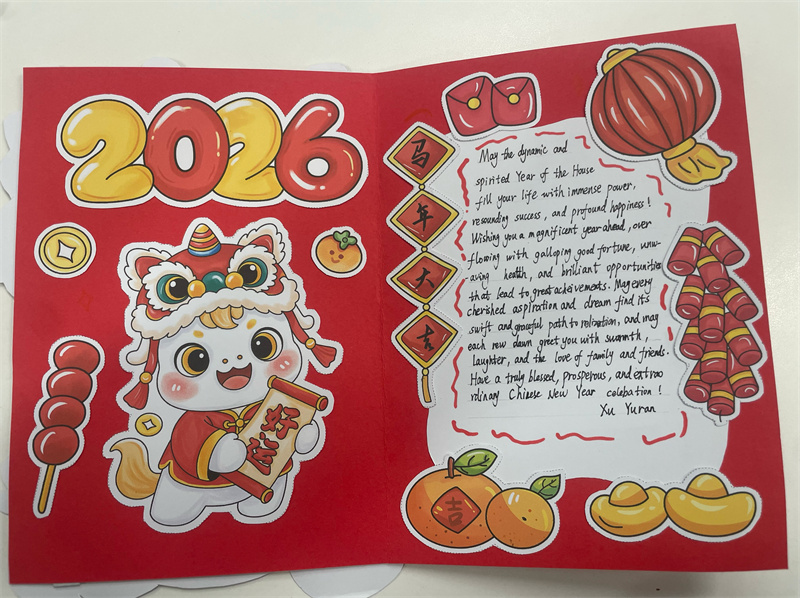 2026
好运
马年大吉
May the dynamic and
spirited Year of the House
fill your life with immense power,
resounding success, and profound happiness!
Wishing you a magnificent year ahead, over
flowing with galloping good fortune, unw-
aving health, and brilliant opportunities
that lead to great acheivements. May every
cherished aspiration and dream find its
swift and graceful path to and may
each new dawn greet you with warmth,
laughter, and the love of family and friends.
Have a truly blessed, prosperous, and extrao
rdinary Chinese New Year celebation!
Xu Yuran
吉